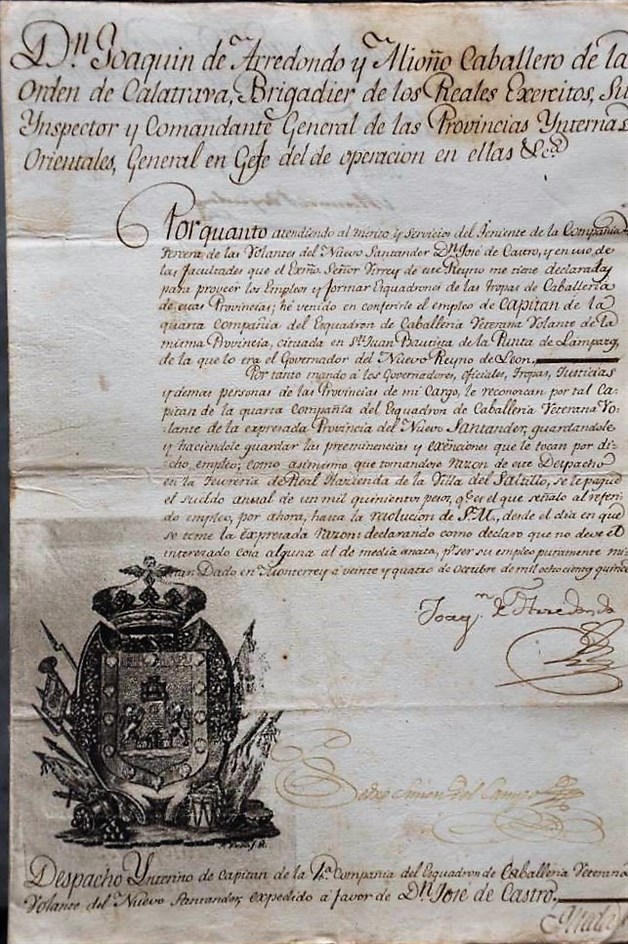 Dn Joaquin de Arredondo y Mioño Caballero de la
Orden de Calatrava, Brigadier de los Reales Exercitos, Su
Ynspector y Comandante General de las Provincias Ynternas
Orientales, General en Gefe del de operacion en ellas &ca
Por quanto atendiendo al merito y servicios del Teniente de la Compañia
tercera de las Volantes del Nuevo Santander Dn José de Castro, y en uso de
las facultades que el Exmo. Señor Virrey de este Reyno me tiene declaradas
para proveer los Empleos y formar Esquadrones de las Tropas de Caballeria
de estas Provincias; hé venido en conferirle el empleo de CAPITAN de la
quarta Compañia del Esquadron de Caballeria Veterana Volante de la
misma Provincia, situada en Sn Juan Bautista de la Punta de Lampazos,
de la que lo era el Governador del Nuevo Reyno de Leon.
Por tanto mando á los Governadores, oficiales, Tropas, Justicias
y demas personas de las Provincias de mi Cargo, le reconozcan por tal Ca-
pitan de la quarta Compañia del Esquadron de Caballeria Veterana Vo-
lante de la expresada Provincia del Nuevo Santander, guardandole
y haciendole guardar las preeminencias y exênciones que le tocan por di-
cho empleo; como asimismo que tomandose razon de este Despacho
en la Tesoreria de Real Hazienda de la Villa del Saltillo, se le pague
el sueldo anual de un mil quinientos pesos, qe es el que señalo al referi-
do empleo, por ahora, hasta la resolucion de S.M., desde el dia en que
se tome la expresada razon: declarando como declaro que no deve el
interesado cosa alguna al de media anata, pr ser su empleo puramente mi-
litar. Dado en Monterrey á veinte y quatro de Octubre de mil ochocientos quince
Joaqn de Arredondo
Pedro Simon del Campo
Despacho Ynterino de Capitan de la 4a Compañia del Esquadron de Caballeria Veterana
Volante del Nuevo Santander, expedido á favor de Dn José de Castro,